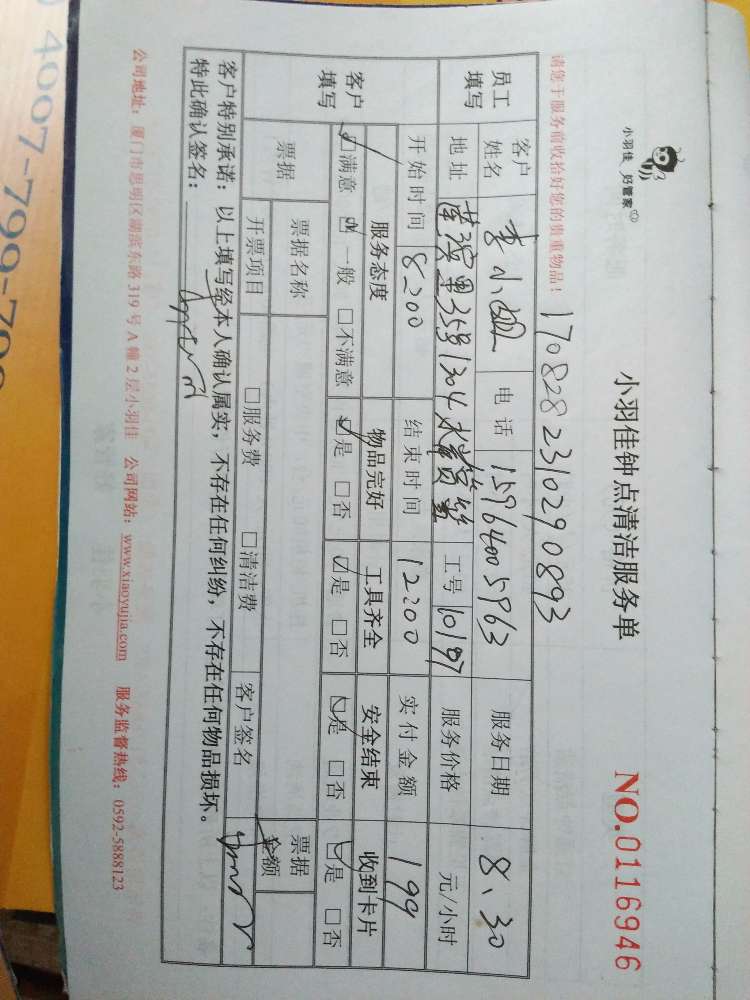 4007-799-700
小羽佳 好管家
小羽佳钟点清洁服务单
NO.0116946
请您于服务前收拾好您的贵重物品！
170828231029 0893
员工填写
客户姓名 李小姐 电话 15964005963 服务日期 8、30
地址 莲滨里35号1304 工号 10197 服务价格 元/小时
开始时间 8:00 结束时间 12:00 实付金额 199
客户填写
服务态度 物品完好 工具齐全 安全结束 收到卡片
☑满意 ☑一般 □不满意 ☑是 □否 ☑是 □否 ☑是 □否 ☑是 □否
票据 票据名称 票据金额
开票项目 □服务费 □清洁费 客户签名
客户特别承诺：以上填写经本人确认属实，不存在任何纠纷，不存在任何物品损坏。
特此确认签名：
公司地址：厦门市思明区湖滨东路 319 号 A 幢 2 层小羽佳 公司网站：www.xiaoyujia.com 服务监督热线：0592-5888123